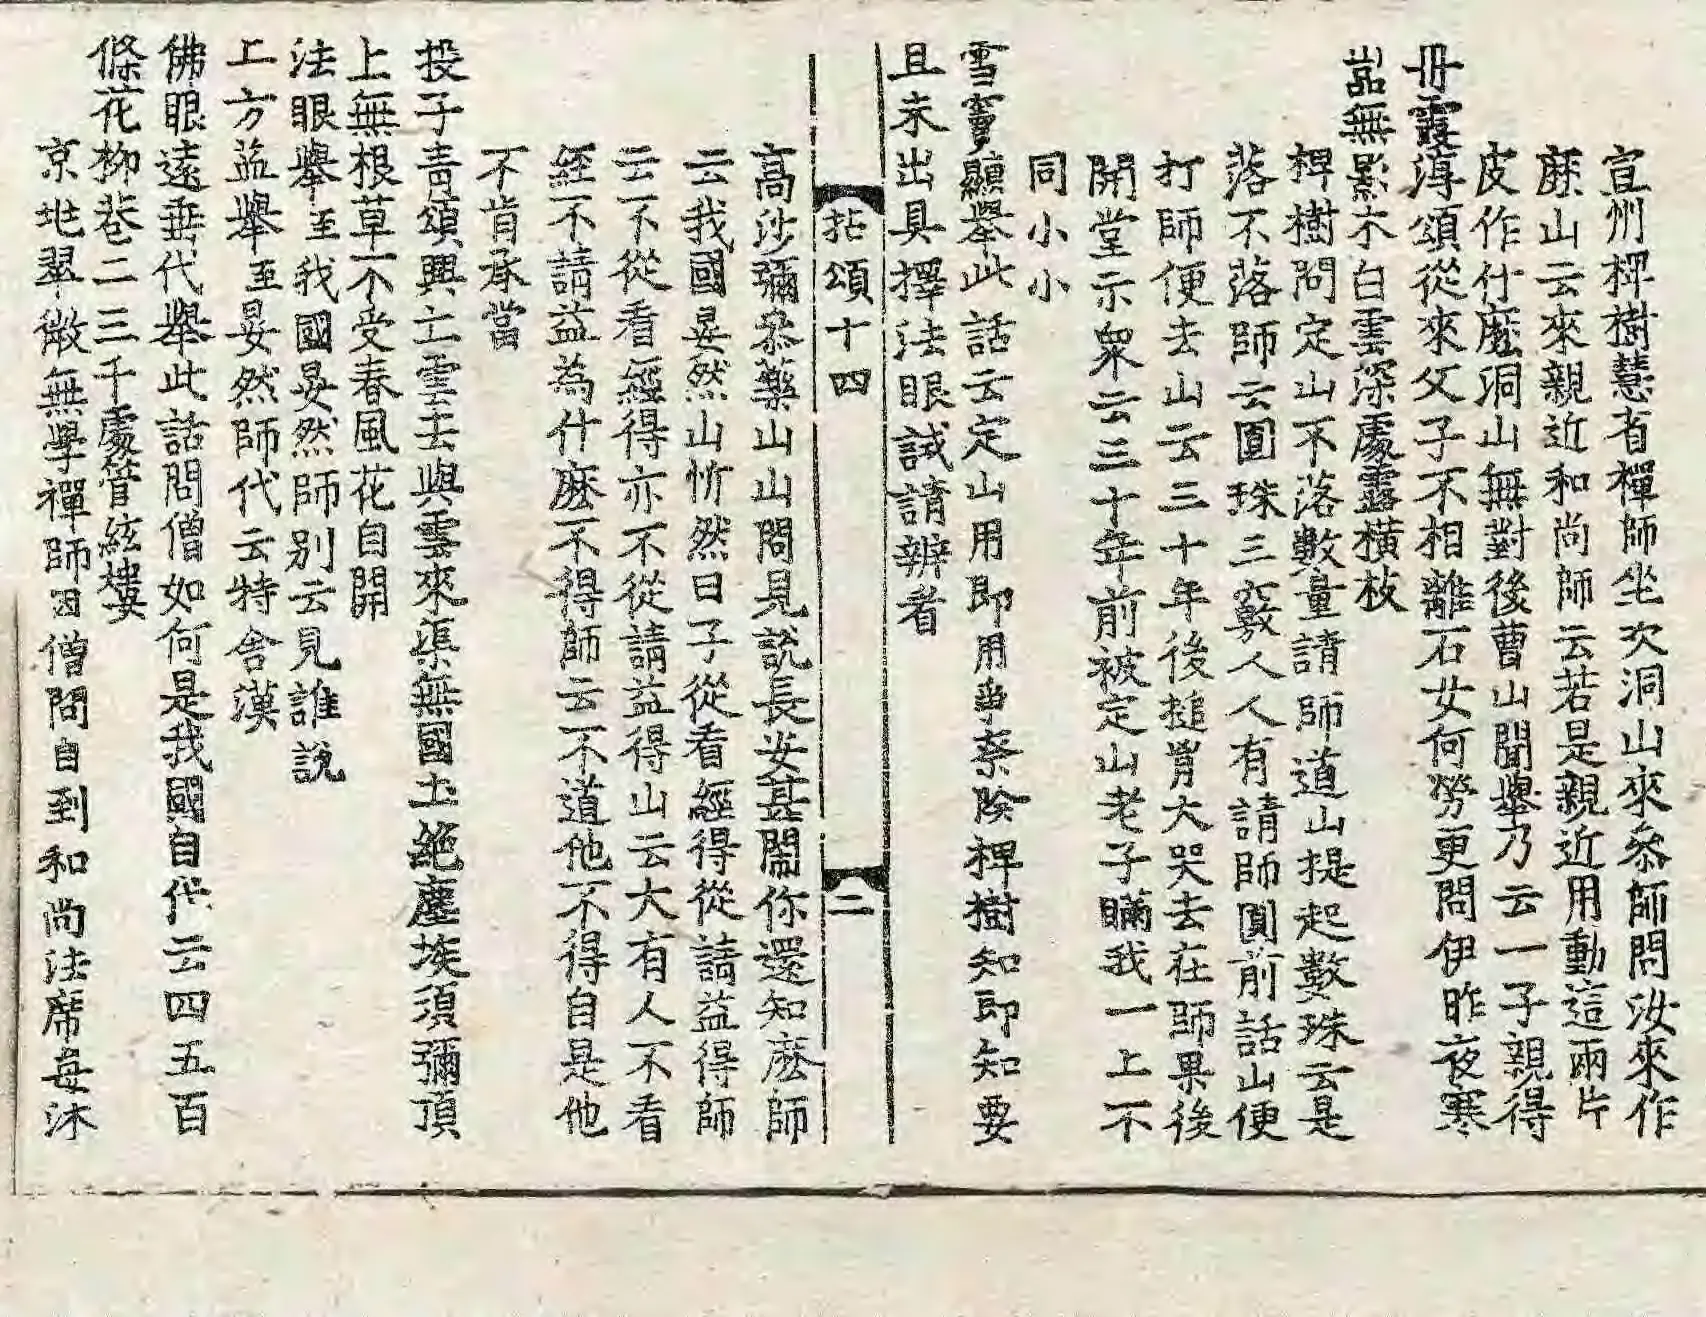 宣州椑樹慧省禪師坐次洞山來叅師問汝來作
麽山云來親近和尚師云若是親近用動這兩片
皮作什麽洞山無對後曹山聞舉乃云一子親得
丹霞淳頌從來父子不相離石女何勞更問伊昨夜寒
嵓無影木白雲深處露橫枝
椑樹問定山不落數量請師道山提起數珠云是
落不落師云圓珠三竅人人有請師圓前話山便
打師便去山云三十年後搥胷大哭去在師果後
開堂示衆云三十年前被定山老子瞞我一上不
同小小
雪竇顯舉此話云定山用即用爭奈險椑樹知即知要
且未出具擇法眼試請辨看
拈頌十四 二
高沙彌叅藥山山問見說長安甚鬧你還知麽師
云我國晏然山忻然曰子從看經得從請益得師
云不從看經得亦不從請益得山云大有人不看
經不請益為什麽不得師云不道他不得自是他
不肯承當
投子青頌興亡雲去與雲來渠無國土絶塵埃須彌頂
上無根草不受春風花自開
法眼舉至我國晏然師別云見誰說
上方益舉至晏然師代云特舍漢
佛眼遠垂代舉此話問僧如何是我國自代云四五百
條花柳巷二三千處管絃樓
京地翠微無學禪師因僧問自到和尚法席每沐